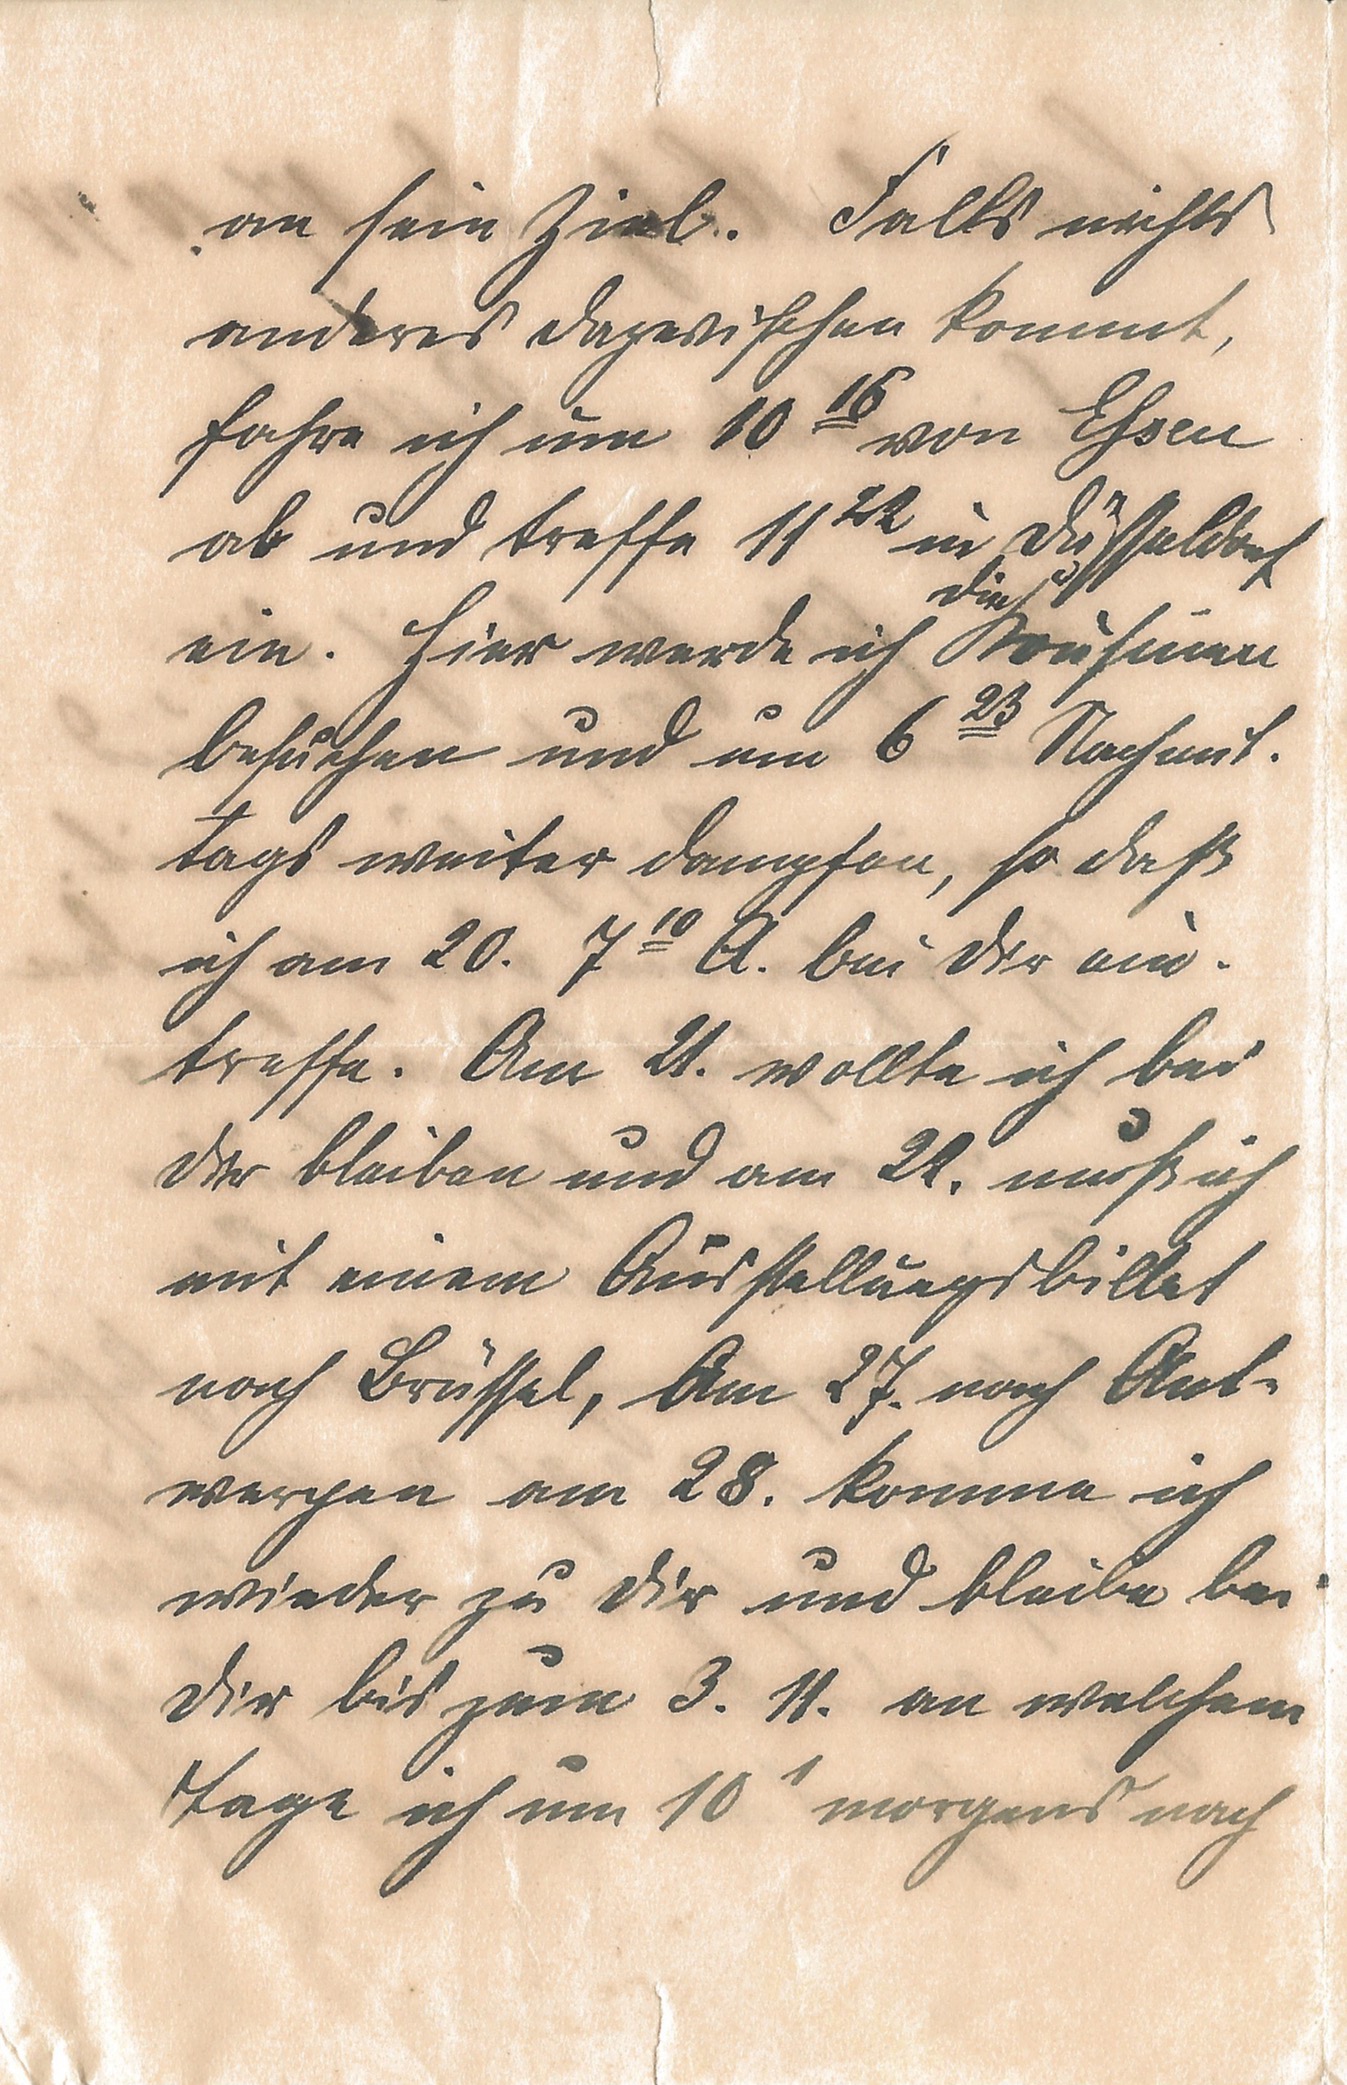 an sein Ziel. Falls nichts
anderes dazwischen kommt,
fahre ich um 10 16 von Essen
ab und treffe 11 22 in Düsseldorf
ein. Hier werde ich die Kousinen
besuchen und um 6 23 Nachmit-
tags weiter dampfen, so daß
ich am 20. 7 10 A. bei Dir ein-
treffe. Am 21. wollte ich bei
Dir bleiben und am 22. muß ich
mit einem Ausstellungsbillet
nach Brüssel, Am 27. nach Ant-
werpen am 28. komme ich
wieder zu Dir und bleibe bei
Dir bis zum 3. 11. an welchem
Tage ich um 10 1 morgens nach